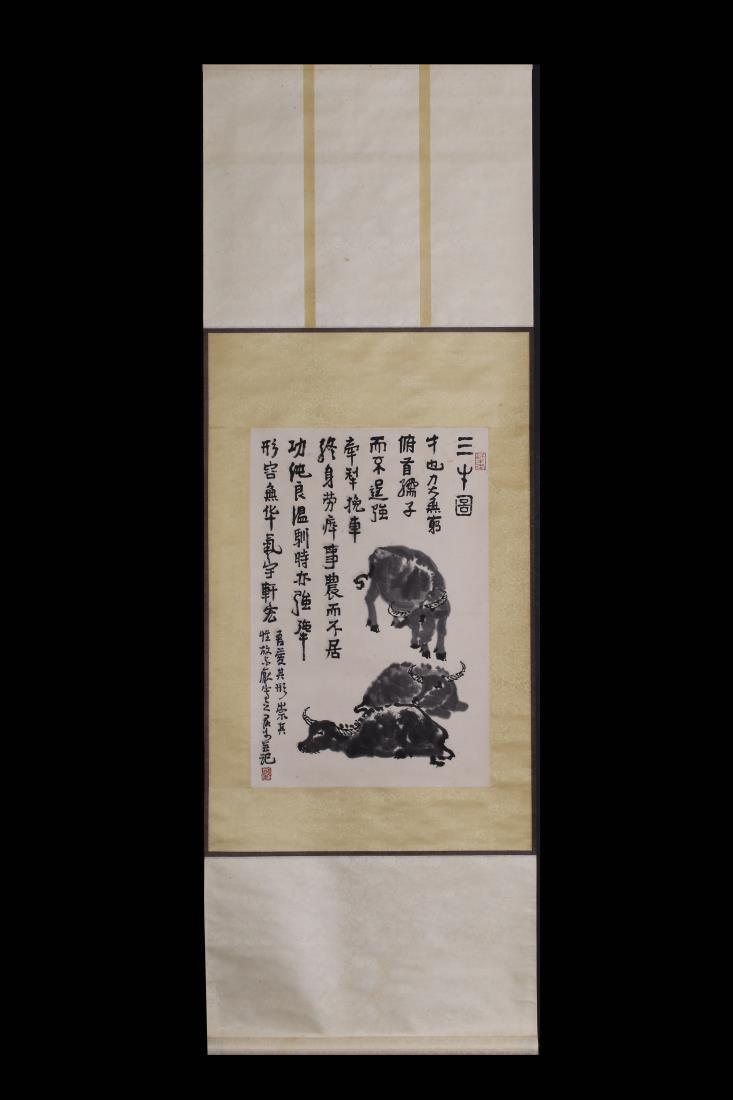 三牛圖
牛也力大無窮
俯首孺子
而不逞強
牽犁挽車
終身勞瘁事農而不居
功純良溫馴時亦強犟
形容無华氣宇軒宏
吾愛其形崇其
性故不厭寫之